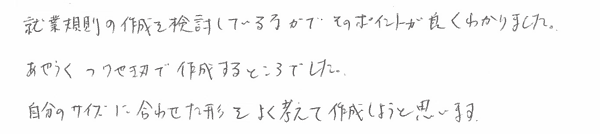 就業規則の作成を検討している方がで そのポイントが良くわかりました。
あやうく つけやき刃で作成するところでした。
自分のサイズに合わせた形をよく考えて作成しようと思います。